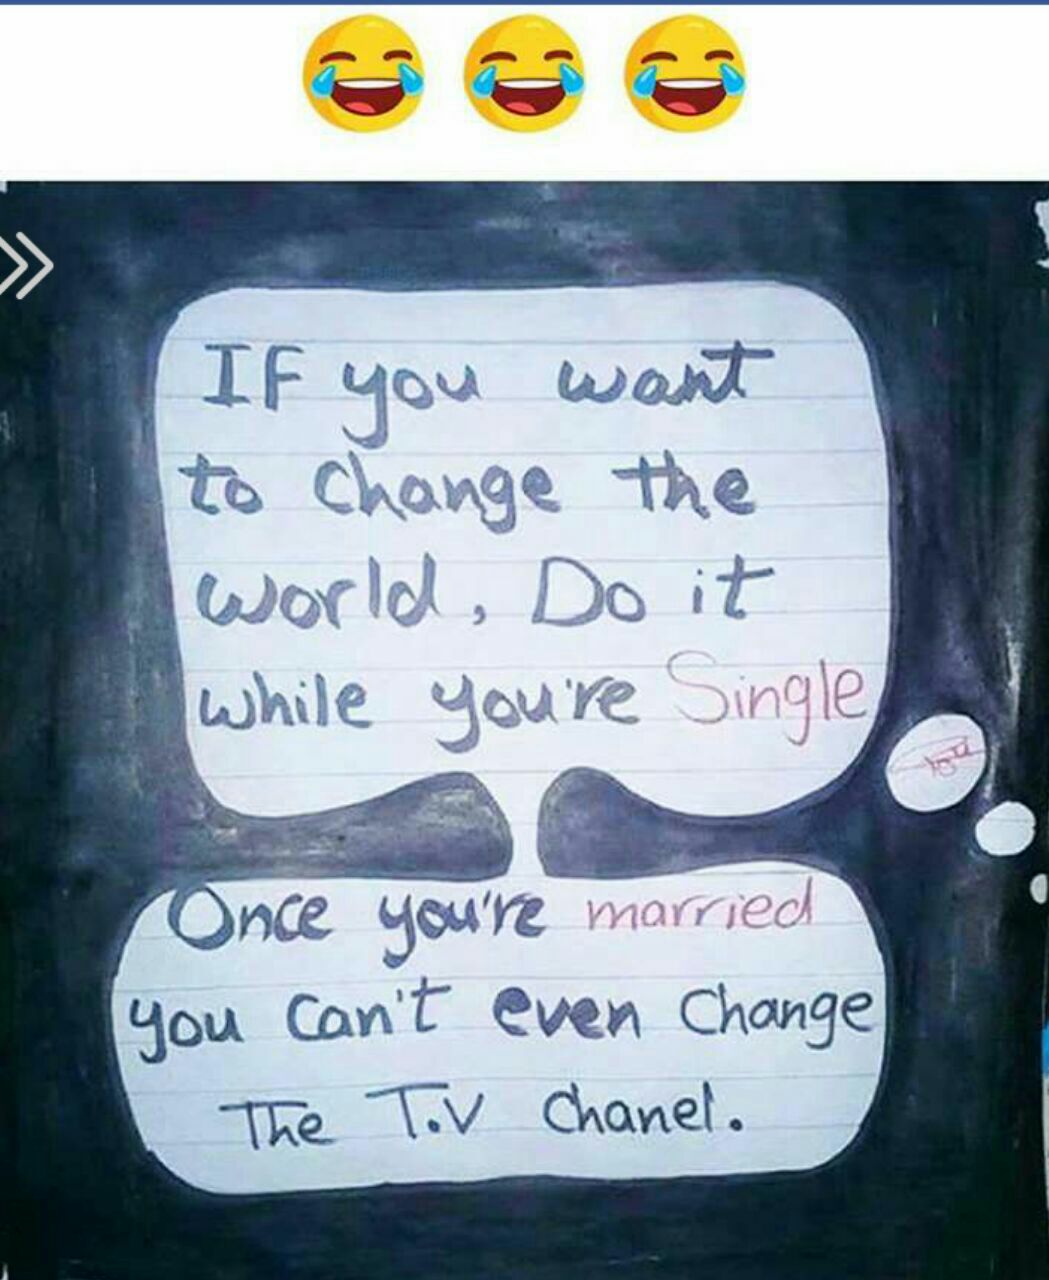 IF you want
to change the
world, Do it
while you're Single
Once you're married
you can't even change
The T.V Chanel.